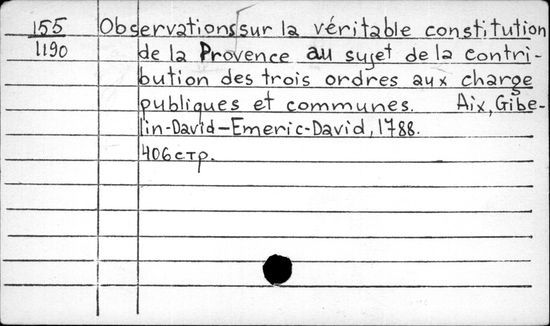 155 Observations sur la véritable constitution
1190 de la Provence au sujet de la contri-
bution des trois ordres aux charge
publiques et communes. Aix, Gibe-
lin-David-Emeric-David, 1788.
406 стр.